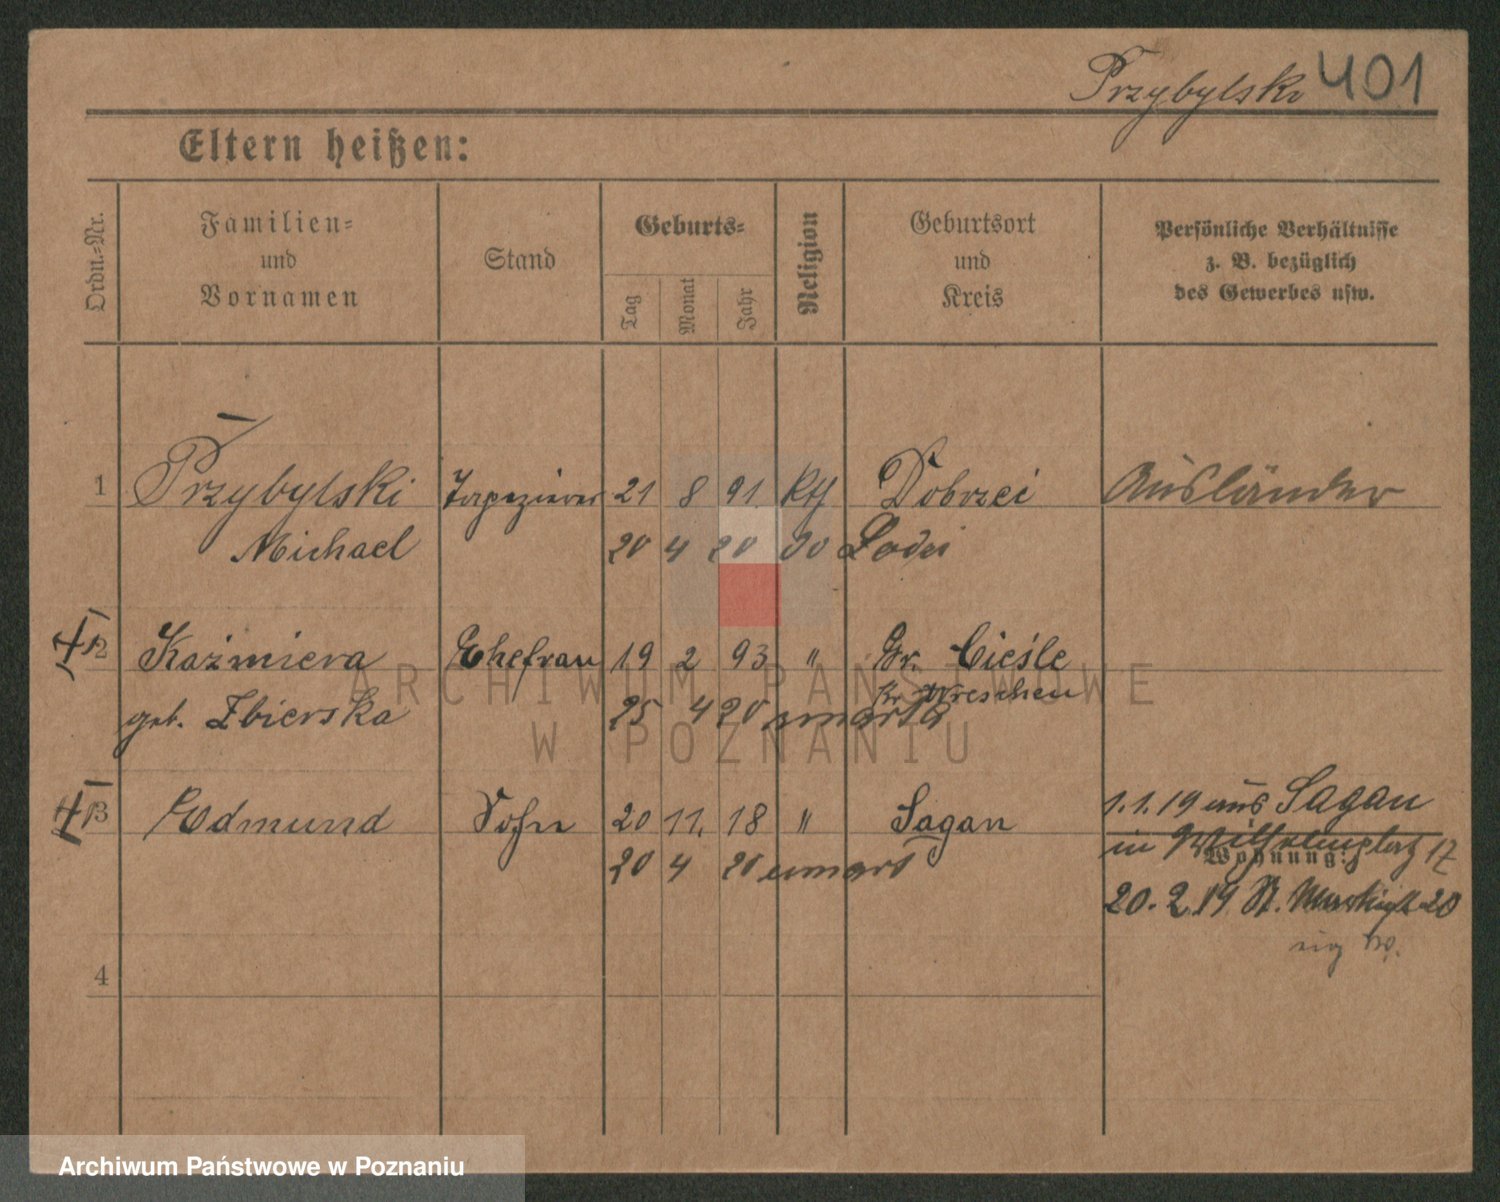 Przybylski 401
Eltern heißen:
Ordn.-Nr.
Familien-
und
Vornamen
Stand
Geburts-
Tag
Monat
Jahr
Religion
Geburtsort
und
Kreis
Persönliche Verhältnisse
z. B. bezüglich
des Gewerbes usw.
1 Przybylski Tapezierer 21 8 91 kth Dobrzei Ausländer
Michael 20 4 20 do
2 Kaźmiera Ehefrau 19 2 93 " Gr. Cieśle
Kr. Wreschen
geb. Zbierska 25 4 20
3 Edmund Sohn 20 11. 18 " Sagan
20 4 20
1.1.19 aus Sagan
in Wilhelmplatz 17
Wohnung:
20.2.19 St. 20
4
ARCHIWUM PAŃSTWOWE
W POZNANIU
Archiwum Państwowe w Poznaniu